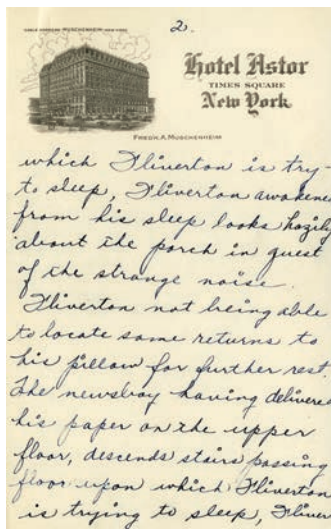 CABLE ADDRESS MUSCHENHEIM NEW YORK
2.
Hotel Astor
TIMES SQUARE
New York
FRED'K A. MUSCHENHEIM
which Fliverton is try-
to sleep, Fliverton awakene
from his sleep looks hazily
about the porch in quest
of the strange noise.
Fliverton not being able
to locate same returns to
his pillow for further rest.
The newsboy having delivere
his paper on the upper
floor, descends stairs passing
floor upon which Fliverton
is trying to sleep, Fliver